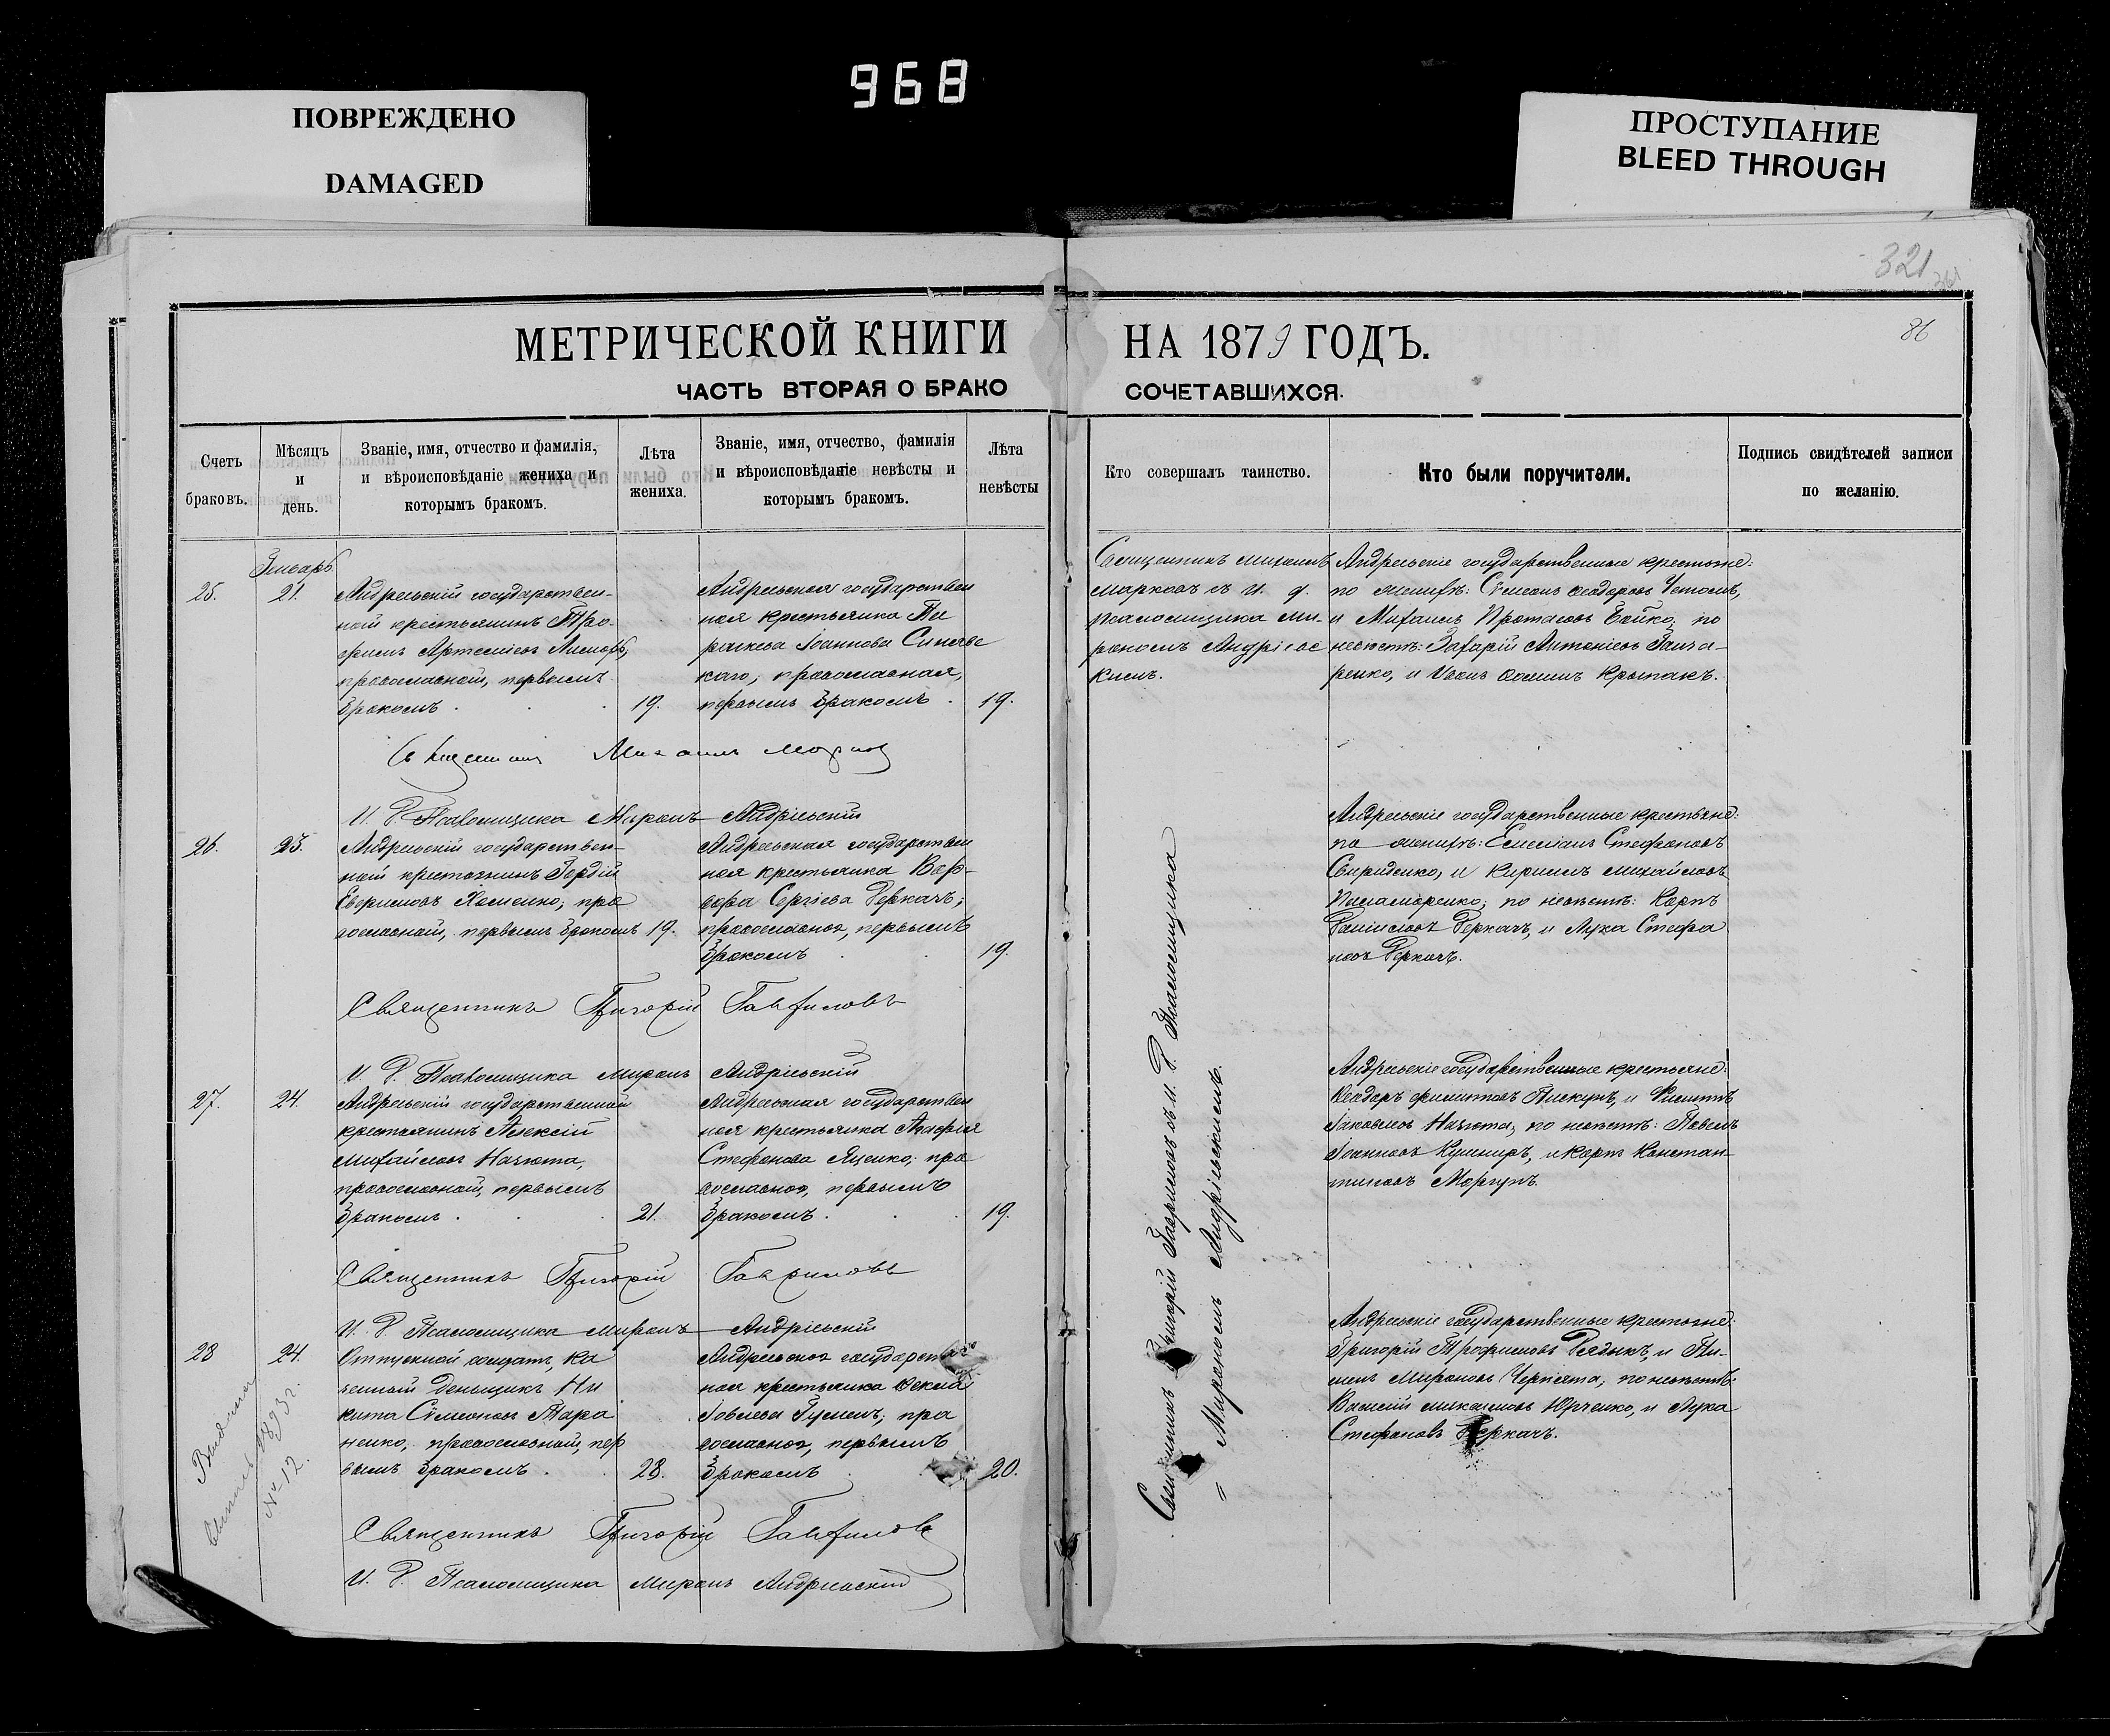 968
ПОВРЕЖДЕНО
DAMAGED
ПРОСТУПАНИЕ
BLEED THROUGH
321
86
МЕТРИЧЕСКОЙ КНИГИ НА 1879 ГОДЪ.
ЧАСТЬ ВТОРАЯ О БРАКОСОЧЕТАВШИХСЯ.
Счетъ браковъ.
Мѣсяцъ и день.
Званіе, имя, отчество и фамилія, и вѣроисповѣданіе жениха и которымъ бракомъ.
Лѣта жениха.
Званіе, имя, отчество, фамилія и вѣроисповѣданіе невѣсты и которымъ бракомъ.
Лѣта невѣсты
Кто совершалъ таинство.
Кто были поручители.
Подпись свидѣтелей записи по желанію.
Январь
25.
21.
Андреевскій государствен-
ной крестьянинъ Тро-
фимъ Артеміевъ
православный, первымъ
бракомъ
19.
Андреевская государствен
ная крестьянка Па
раскева Іоаннова
православная,
первымъ бракомъ
19.
Священникъ Михаилъ
Марковъ съ И. д.
псаломщика Ми-
рономъ Андріевс
кимъ.
Андреевскіе государственные крестьяне:
по женихѣ: Симеонъ Ѳеодоровъ
и Михаилъ Протасовъ Бойко, по
невѣстѣ: Захарій Антоніевъ Ганча-
ренко, и Иванъ
Священникъ Михаилъ Марковъ
И. Д. Псаломщика Миронъ Андріевскій
26.
23.
Андреевскій государствен-
ной крестьянинъ Гордій
Хоменко, пра
вославный, первымъ бракомъ
19.
Андреевская государствен
ная крестьянка Вар-
вара Сергіева Деркачъ,
православная, первымъ
бракомъ
19.
Андреевскіе государственные крестьяне:
по женихѣ: Емеліанъ Стефановъ
Свириденко, и Кириллъ Михайловъ
Паламаренко, по невѣстѣ: Карпъ
Деркачъ, и Лука Стефа
новъ Деркачъ.
Священникъ Григорій Гавриловъ
И. Д. Псаломщика Миронъ Андріевскій
27.
24.
Андреевскій государственный
крестьянинъ Алексій
Михайловъ Начота,
православный, первымъ
бракомъ
21.
Андреевская государствен
ная крестьянка Агафія
Стефанова Яценко, пра
вославная, первымъ
бракомъ
19.
Андреевскіе государственные крестьяне:
Ѳеодоръ Филиповъ Пискунъ, и Филиппъ
Іаковлевъ Начота, по невѣстѣ: Павелъ
Іоанновъ Кушниръ, и Карпъ Констан-
тиновъ Моргунъ.
Священникъ Григорій Гавриловъ
И. Д. Псаломщика Миронъ Андріевскій
28
24.
Отпускной солдатъ, ка
зенный деньщикъ Ни
кита Симеоновъ Тара
ненко, православный, пер
вымъ бракомъ
28.
Андреевская государствен
ная крестьянка Ѳекла
Іовлева Гуменъ, пра
вославная, первымъ
бракомъ
20.
Андреевскіе государственные крестьяне:
Григорій Трофимовъ и Пи-
менъ Мироновъ по невѣстѣ:
Василій Михаиловъ Юрченко, и Лука
Стефановъ Деркачъ.
Священникъ Григорій Гавриловъ
И. Д. Псаломщика Миронъ Андріевскій
1893 г.
№ 12.
Священникъ Григорій Гавриловъ съ И. Д. Псаломщика
Мирономъ Андріевскимъ.